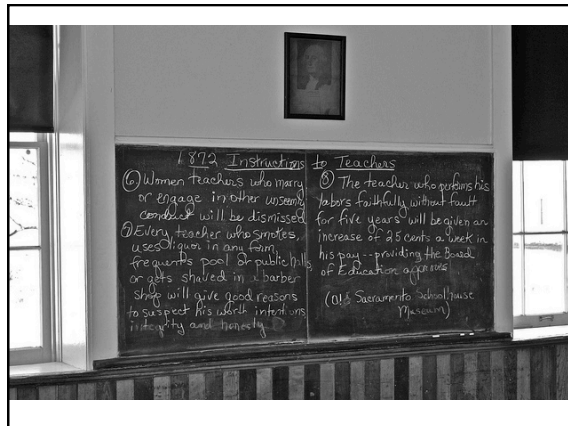 1872 Instructions to Teachers
⑥ Women teachers who marry
or engage in other unseemly
conduct will be dismissed
⑦ Every teacher who smokes,
uses liquor in any form,
frequents pool or public halls
or gets shaved in a barber
shop will give good reasons
to suspect his worth intentions
integrity and honesty
⑧ The teacher who performs his
labors faithfully without fault
for five years will be given an
increase of 25 cents a week in
his pay -- providing the Board
of Education approves
(Old Sacramento Schoolhouse
Museum)